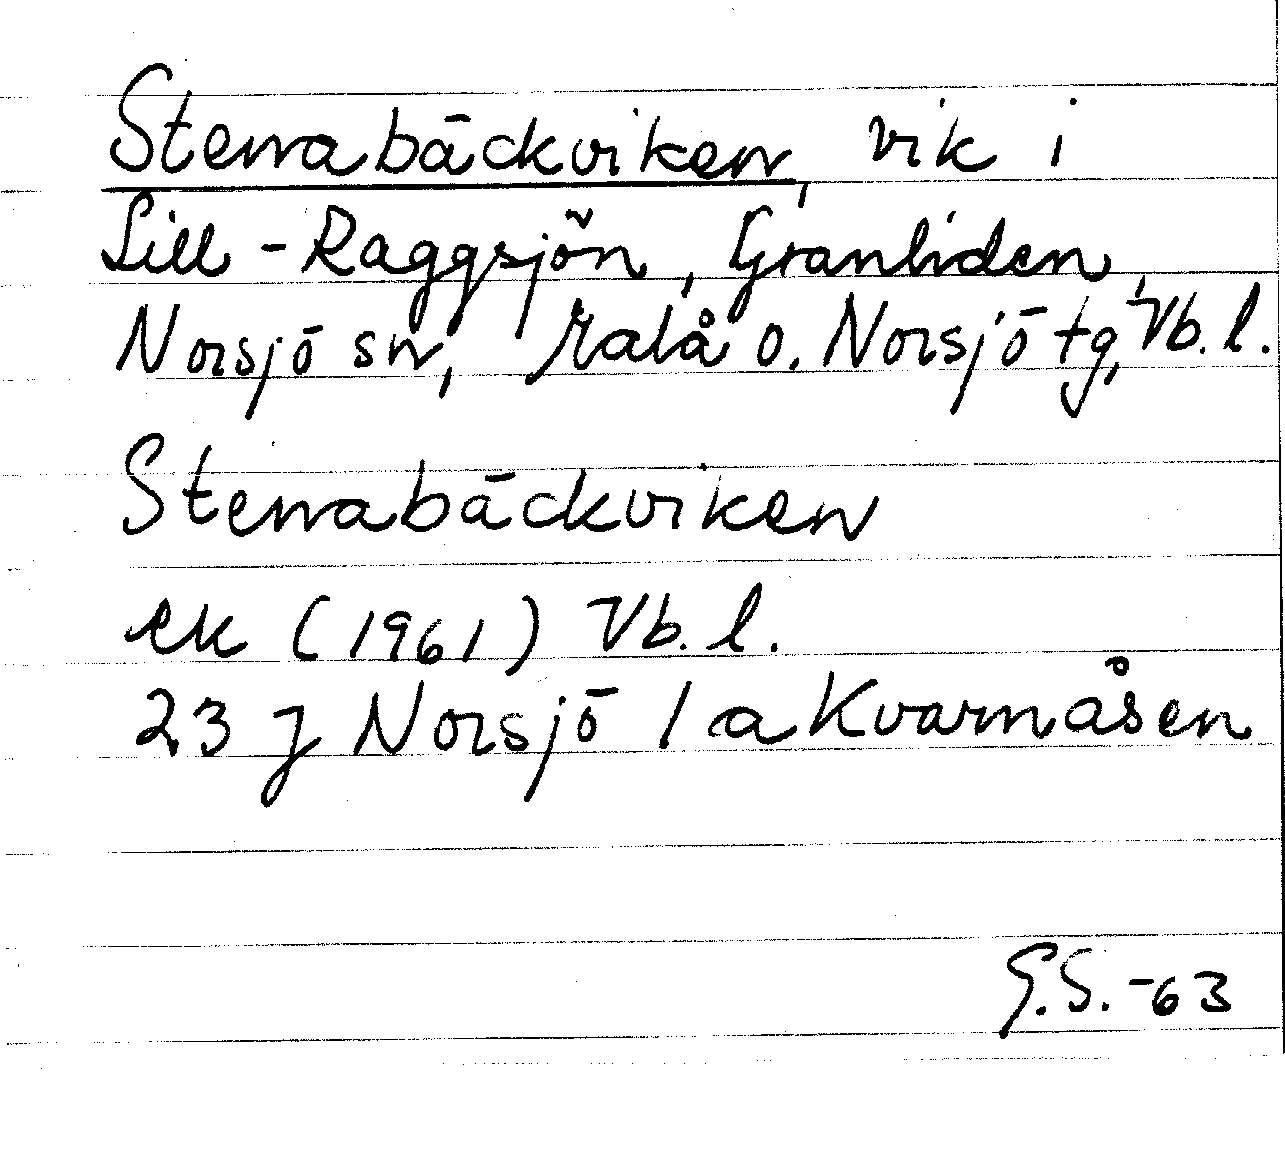 Stenabäckviken, vik i
Lill-Raggsjön, Granliden,
Norsjö sn, Malå o. Norsjö tg, Vb. l.
Stenabäckviken
ek (1961) Vb. l.
23 J Norsjö 1 a Kvarnåsen
G.S.-63